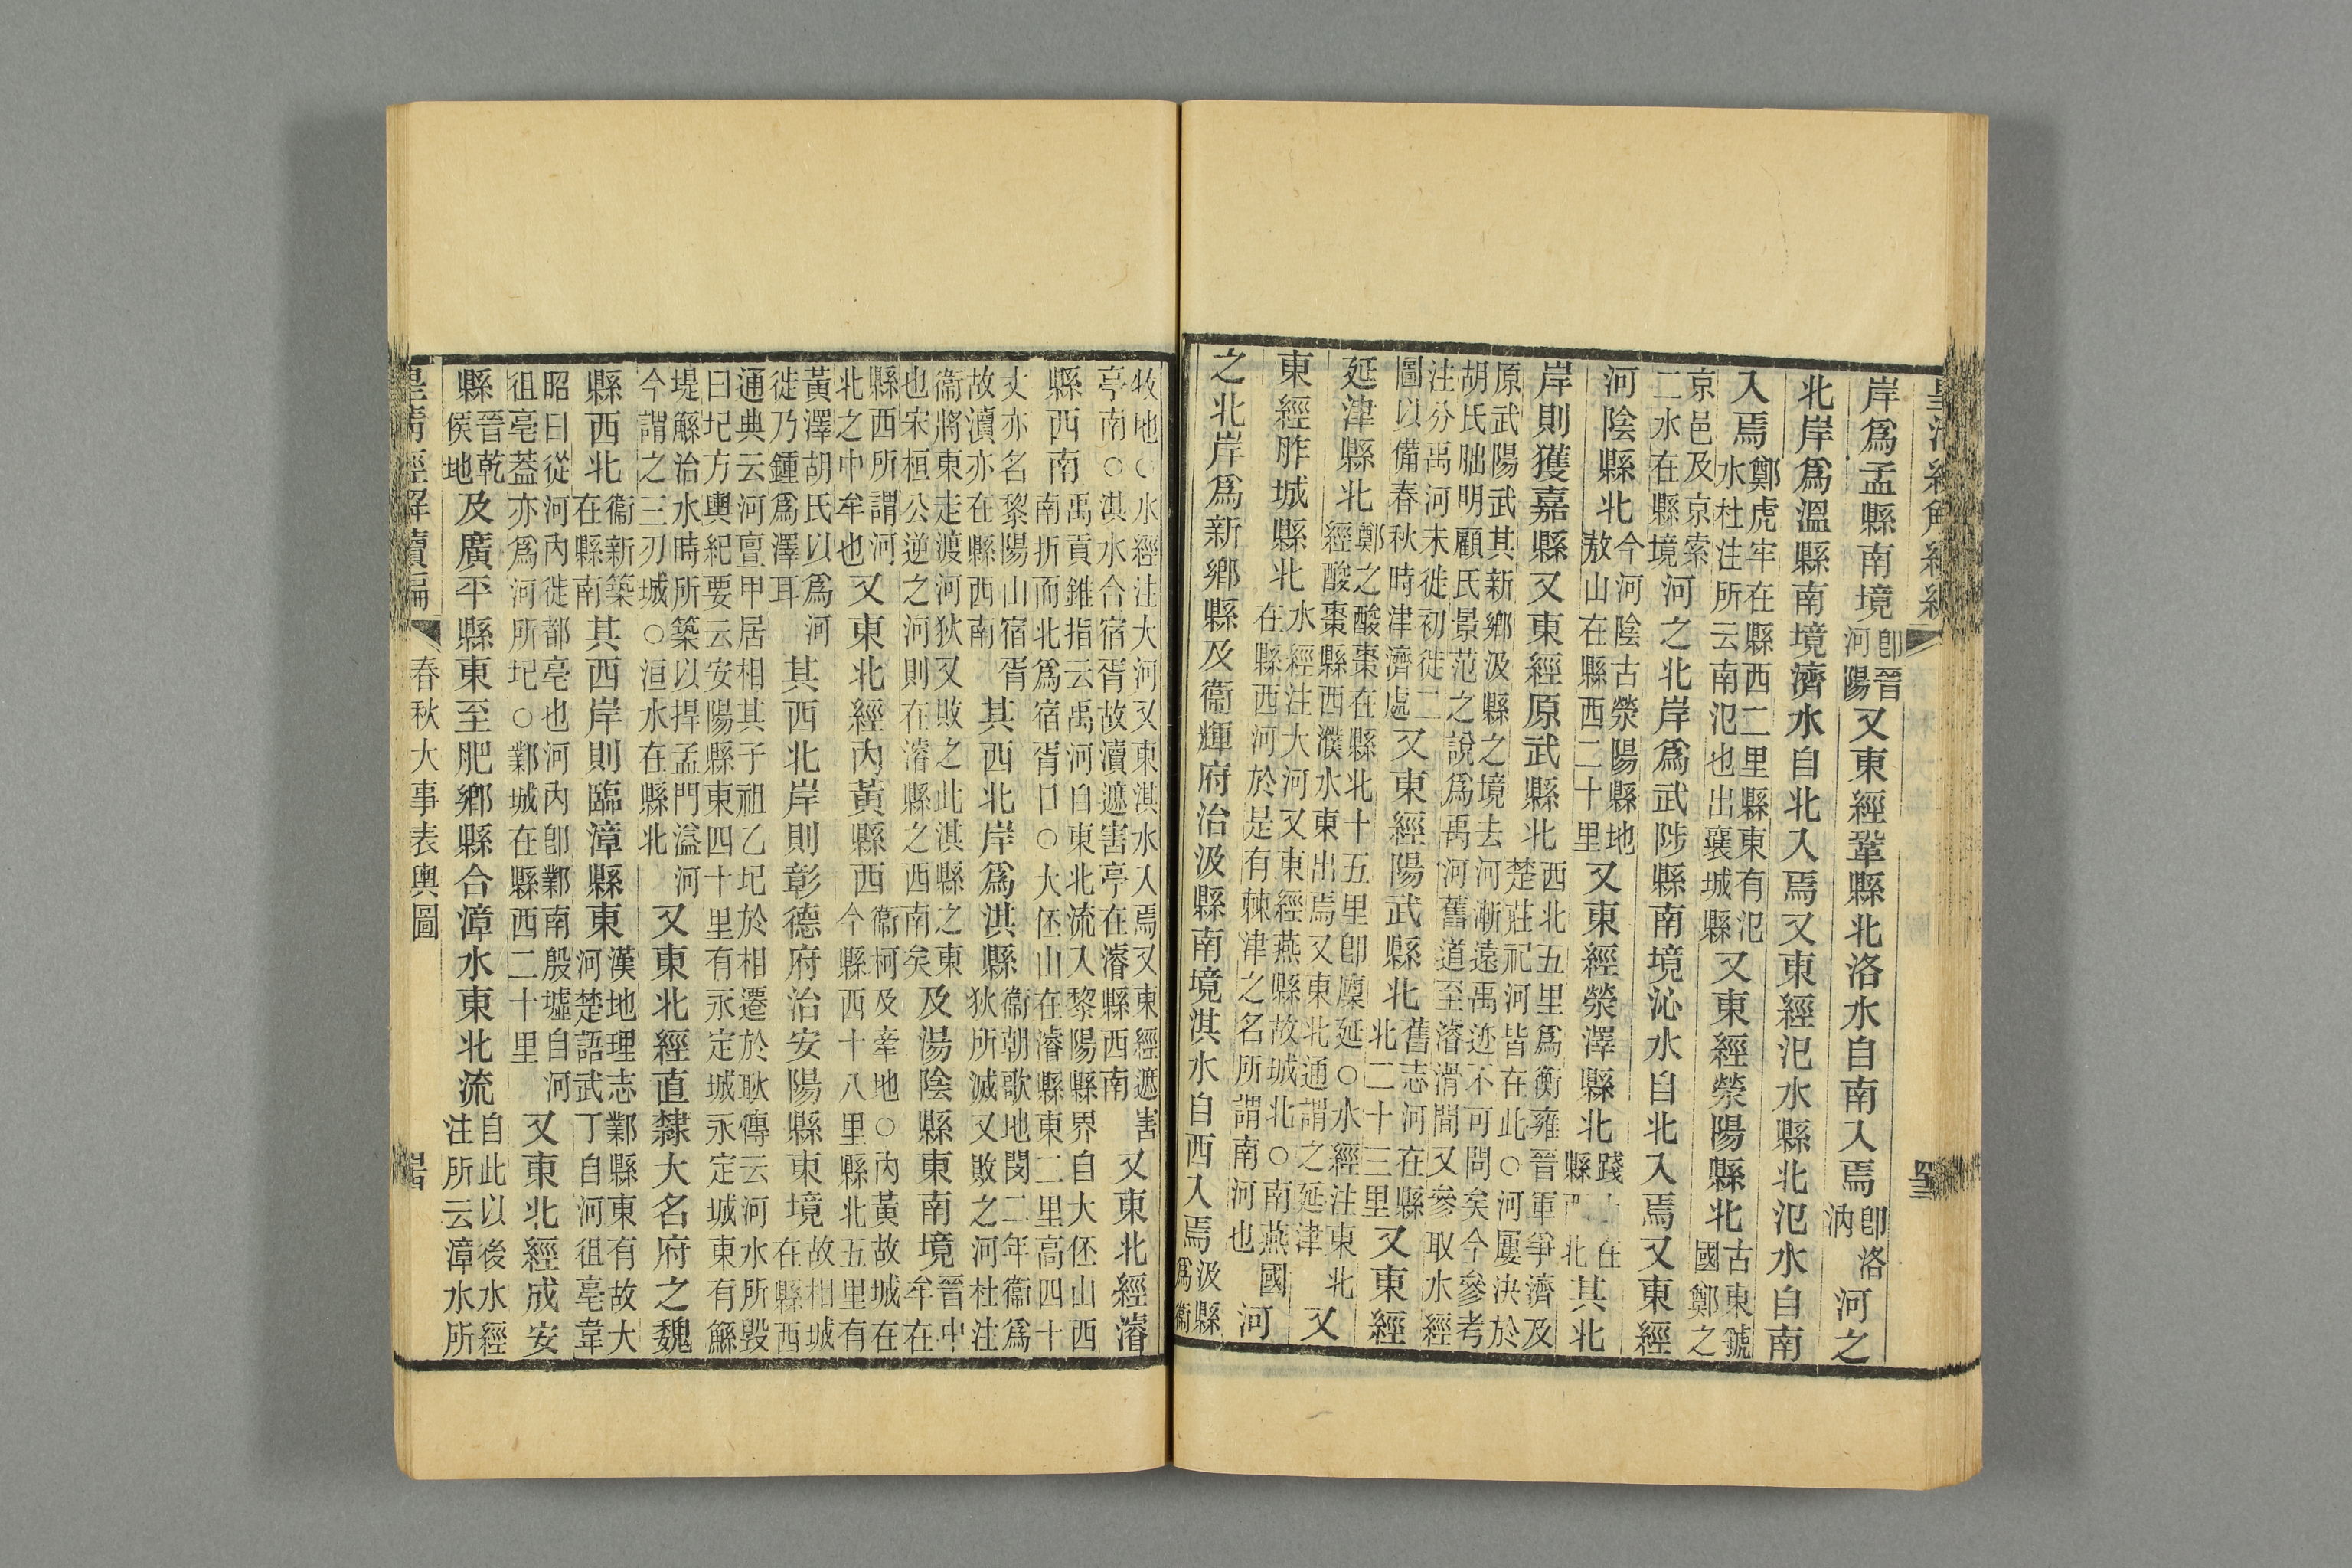 岸爲孟縣南境卽晉河陽又東經鞏縣北洛水自南入焉卽洛汭河之
北岸爲溫縣南境濟水自北入焉又東經汜水縣北汜水自南
入焉鄭虎牢在縣西二里縣東有汜水杜注所云南汜也出襄城縣又東經滎陽縣北古東虢國鄭之
京邑及京索二水在縣境河之北岸爲武陟縣南境沁水自北入焉又東經
河陰縣北今河陰古滎陽縣地敖山在縣西二十里又東經滎澤縣北踐土在縣西北其北
岸則獲嘉縣又東經原武縣北西北五里爲衡雍晉軍爭濟及楚莊祀河皆在此○河屢決於
原武陽武其新鄉汲縣之境去河漸遠禹迹不可問矣今參考胡氏朏明顧氏景范之說爲禹河舊道至濬滑間又參取水經
注分禹河未徙初徙二圖以備春秋時津濟處又東經陽武縣北舊志河在縣北二十三里又東經
延津縣北鄭之酸棗在縣北十五里卽廩延○水經注東北經酸棗縣西濮水東出焉又東北通謂之延津又
東經胙城縣北水經注大河又東經燕縣故城北○南燕國在縣西河於是有棘津之名所謂南河也河
之北岸爲新鄉縣及衞輝府治汲縣南境淇水自西入焉汲縣爲衞
牧地○水經注大河又東淇水入焉又東經遮害亭南○淇水合宿胥故瀆遮害亭在濬縣西南又東北經濬
縣西南禹貢錐指云禹河自東北流入黎陽縣界自大伾山西南折而北爲宿胥口○大伾山在濬縣東二里高四十
丈亦名黎陽山宿胥故瀆亦在縣西南其西北岸爲淇縣衞朝歌地閔二年衞爲狄所滅又敗之河杜注
衞將東走渡河狄又敗之此淇縣之東也宋桓公逆之河則在濬縣之西南矣及湯陰縣東南境晉中牟在
縣西所謂河北之中牟也又東北經內黃縣西衞柯及牽地○內黃故城在今縣西十八里縣北五里有
黃澤胡氏以爲河徙乃鍾爲澤耳其西北岸則彰德府治安陽縣東境故相城在縣西
通典云河亶甲居相其子祖乙圮於相遷於耿傳云河水所毀曰圮方輿紀要云安陽縣東四十里有永定城永定城東有鯀
堤鯀治水時所築以捍孟門溢河今謂之三刃城○洹水在縣北又東北經直隸大名府之魏
縣西北衞新築在縣南其西岸則臨漳縣東漢地理志鄴縣東有故大河楚語武丁自河徂亳韋
昭曰從河內徙都亳也河內卽鄴南殷墟自河徂亳蓋亦爲河所圮○鄴城在縣西二十里又東北經成安
縣晉乾侯地及廣平縣東至肥鄉縣合漳水東北流自此以後水經注所云漳水所
春秋大事表輿圖